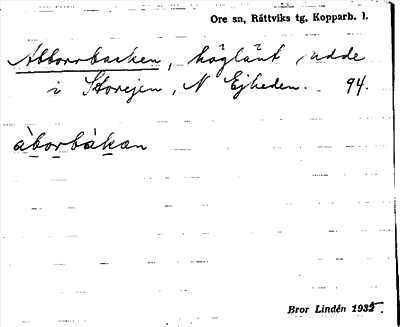 Ore sn, Rättviks tg, Kopparb. l.
Abborrbacken, höglänt udde
i Storejen, N Ejheden. 94.
àborbàkan
Bror Lindén 1935.